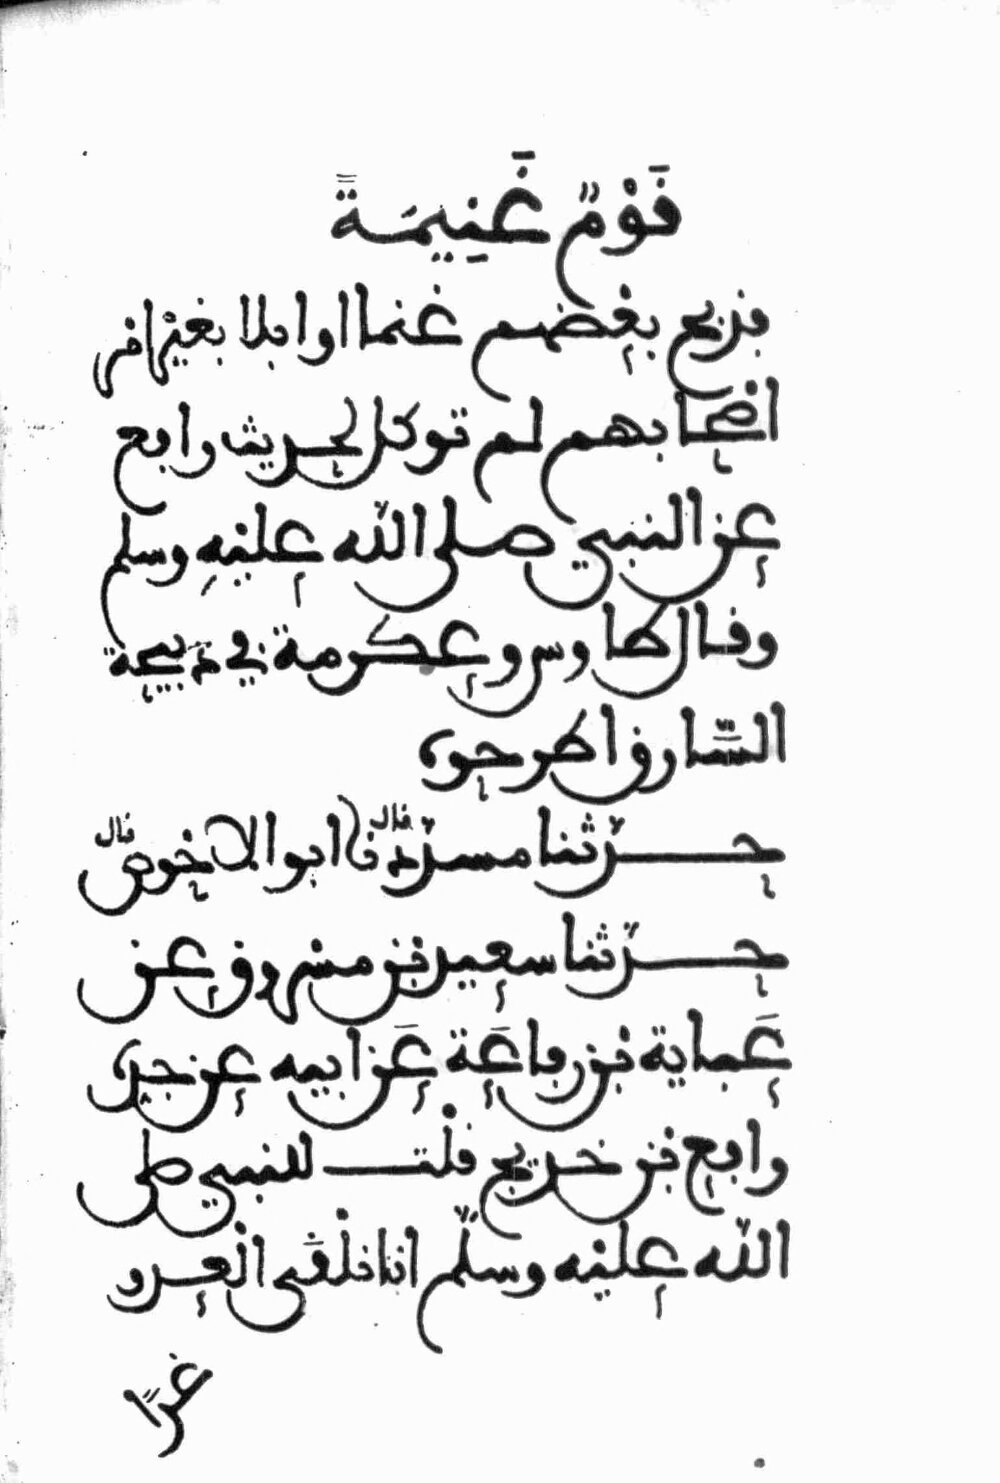 قَوْمٌ غَنِيمَةً
فذبح بعضهم غنما او ابلا بغير امر
اصحابهم لم توكل لحديث رابع
عن النبي صلى الله عليه وسلم
وقال طاوس وعكرمة في ذبيحة
السّارق اطرحوه
حدّثنا مسدّد قال نا ابو الاحوص قال
حدّثنا سعيد بن مسروق عن
عَباية بن رفاعَة عَن ابيه عن جده
رابع بن خديج قلت للنبي صلى
الله عليه وسلّم اننا نلقى العدو
غدًا